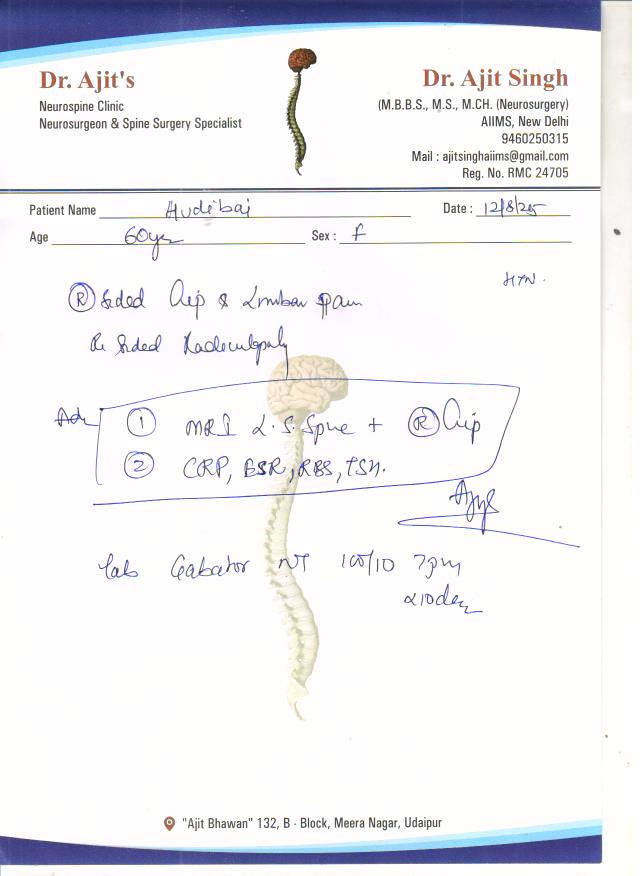 Dr. Ajit's
Neurospine Clinic
Neurosurgeon & Spine Surgery Specialist
Dr. Ajit Singh
(M.B.B.S., M.S., M.CH. (Neurosurgery)
AIIMS, New Delhi
9460250315
Mail : ajitsinghaiims@gmail.com
Reg. No. RMC 24705
Patient Name Hudibai Date : 12/8/25
Age 60yr Sex : F
HTN.
(R) sided Hip & Lumbar pain
sided Radiculopathy
Adv
(1) MRI L.S. Spine + (R) Hip
(2) CRP, ESR, RBS, TSH.
Tab Gabator NT 100/10 7pm
x10day
"Ajit Bhawan" 132, B - Block, Meera Nagar, Udaipur